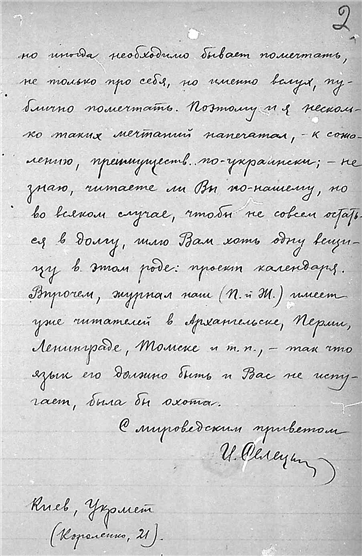 2
но иногда необходимо бывает помечтать,
не только про себя, но именно вслух, пу-
блично помечтать. Поэтому и я несколь-
ко таких мечтаний напечатал, - к сожа-
лению, преимуществ. по-украински; - не
знаю, читаете ли Вы по-нашему, но
во всяком случае, чтобы не совсем остать-
ся в долгу, шлю Вам хоть одну вещи-
цу в этом роде: проект календаря.
Впрочем, журнал наш (П. и Ж.) имеет
уже читателей в Архангельске, Перми,
Ленинграде, Томске и т.п., - так что
язык его должно быть и Вас не испу-
гает, была бы охота.
С мироведским приветом
И. Селецкий
Киев, Укрмет
(Короленко, 21).